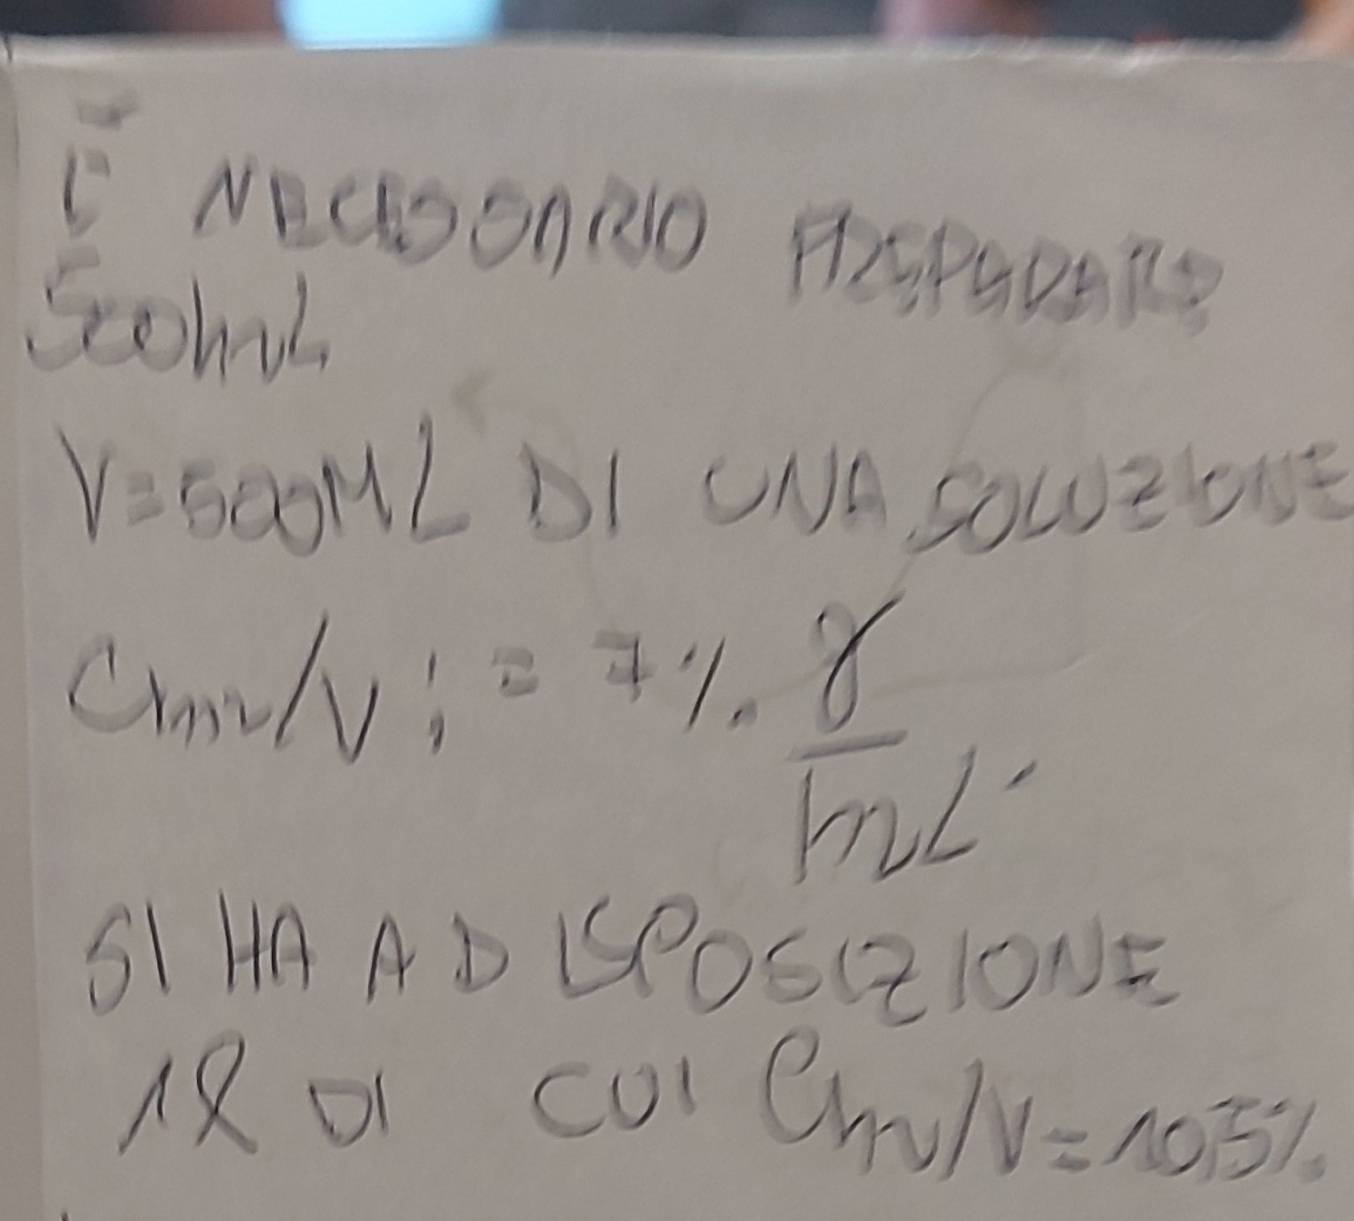 È NECESSARIO PREPARARE
500mL
V=500ML DI UNA SOLUZIONE
Cm/V : = 7%. g
mL
SI HA A DISPOSIZIONE
1l DI CUI Cm/V=10,5%.